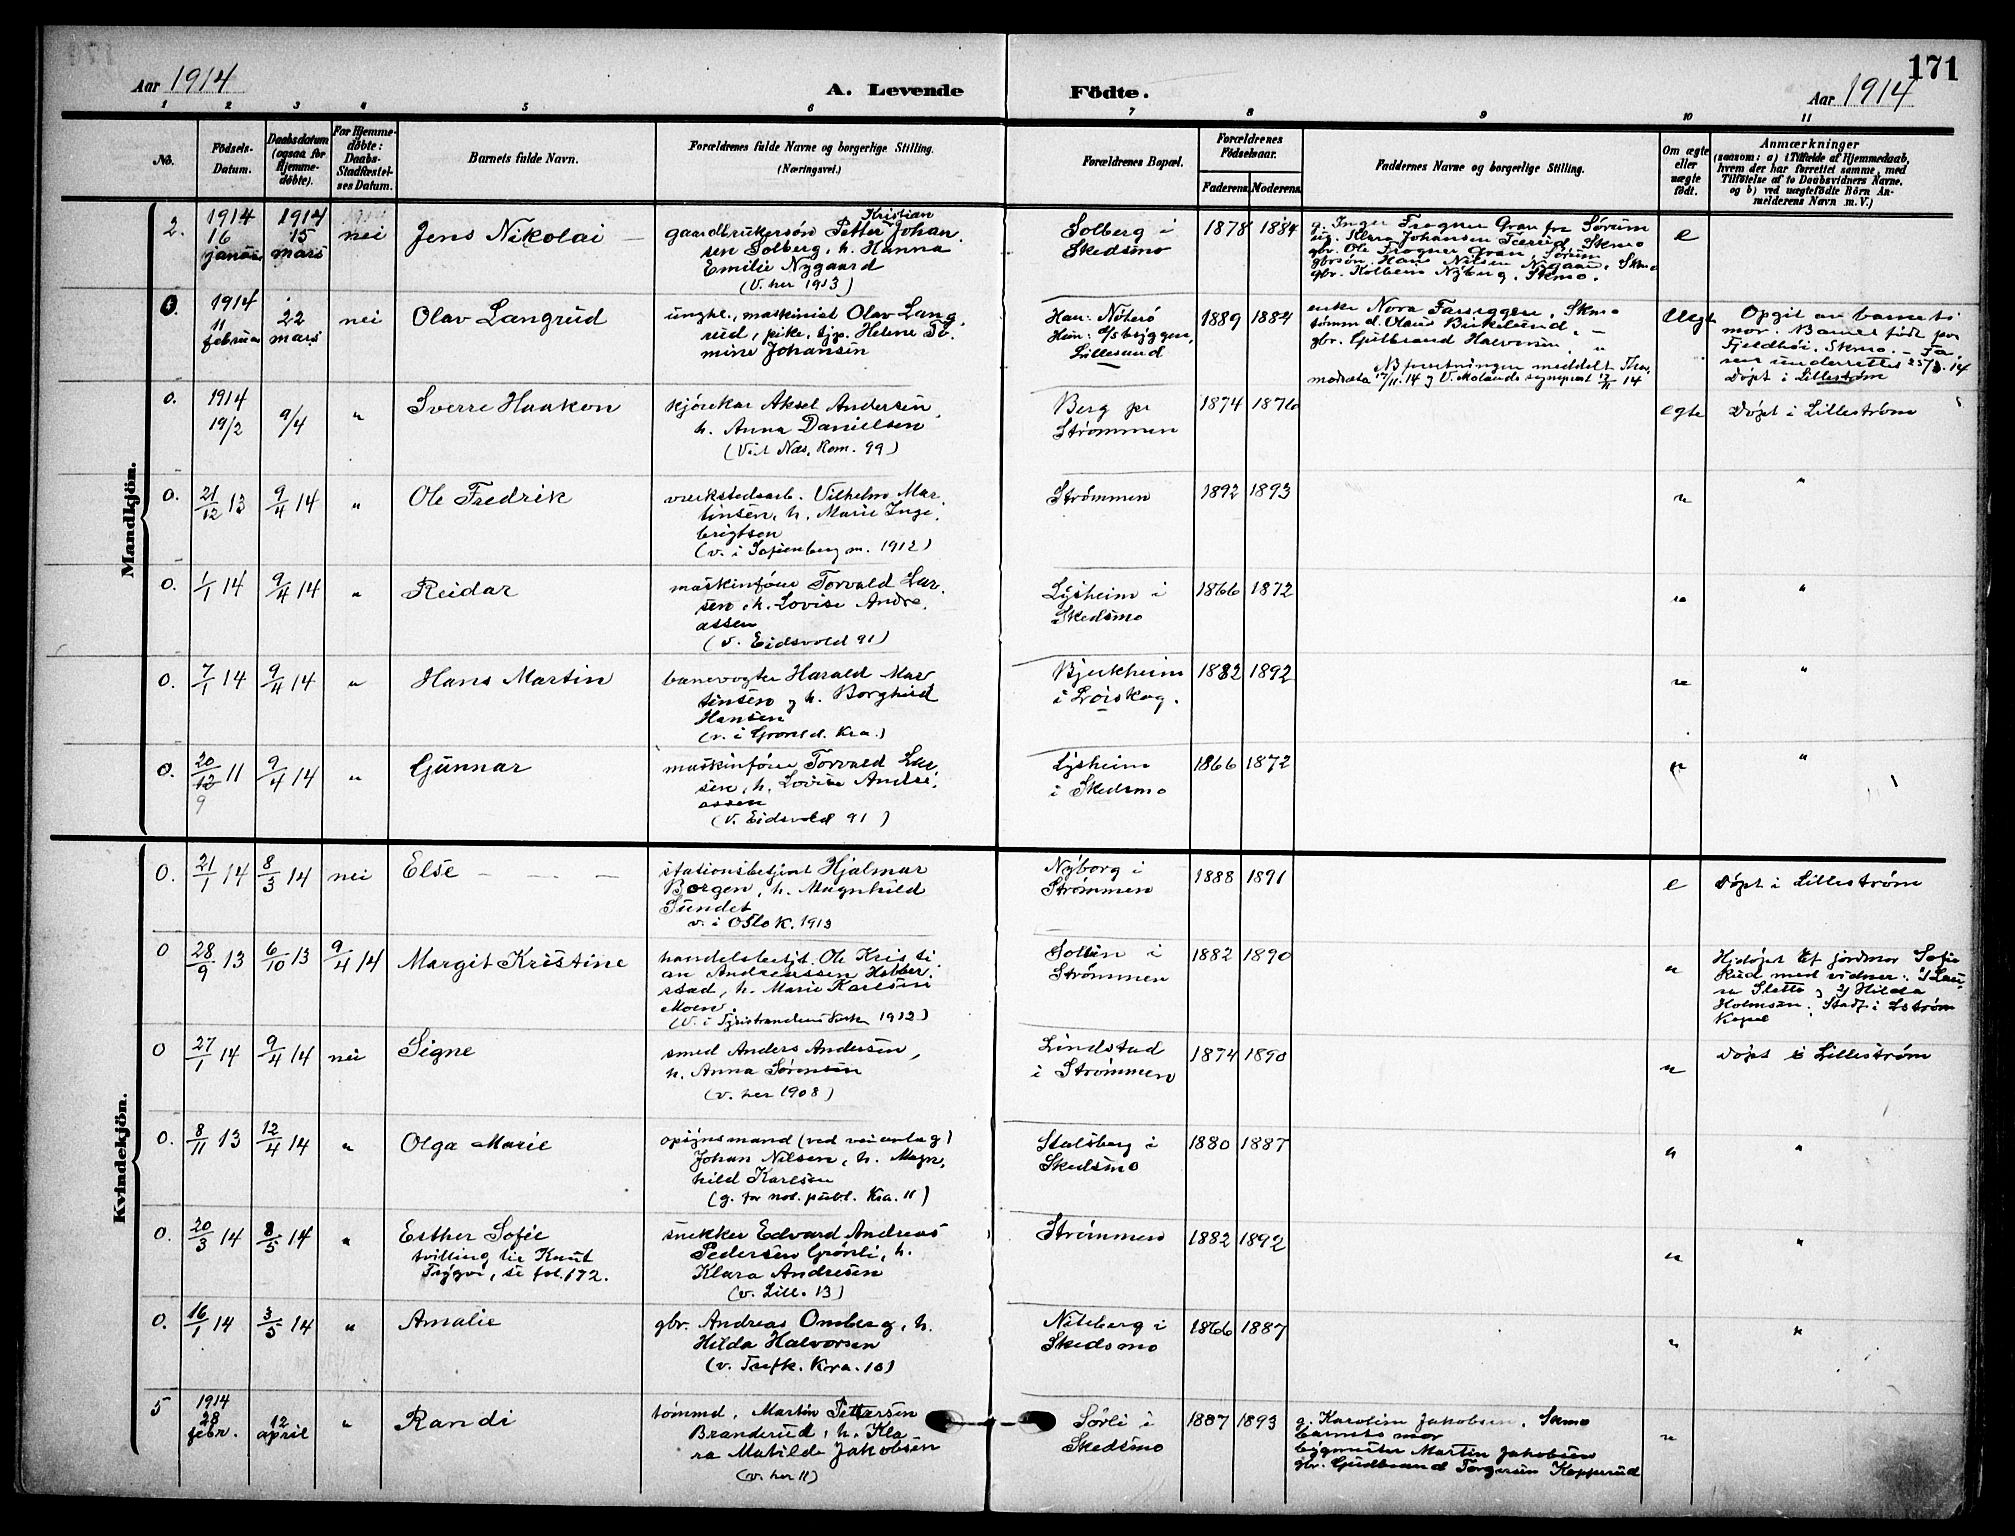 171
Aar 1914
A. Levende Födte.
Aar 1914
1 2 3 4 5 6 7 8 9 10 11
No.
Födsels-
Datum.
Daabsdatum
(ogsaa for
Hjemme-
døbte).
For Hjemme-
døbte:
Daabs-
Stadfæstel-
ses Datum.
Barnets fulde Navn.
Forældrenes fulde Navne og borgerlige Stilling.
(Næringsvei.)
Forældrenes Bopæl.
Forældrenes
Födselsaar.
Faderens. Moderens.
Faddernes Navne og borgerlige Stilling.
Om ægte
eller
uægte
født.
Anmærkninger
(saasom: a) i Tilfælde af Hjemmedaab,
hvem der har forrettet samme, med
Tilføielse af to Daabsvidners Navne,
og b) ved uægtefödte Börn An-
melderens Navn m. V.)
Mandkjön.
2.
1914
16
januar
1914
15
mars
nei
Jens Nikolai
Kristian
gaardbrukersøn Petter Johan-
sen Solberg, h. Hanna
Emilie Nygaard
(V. her 1913)
Solberg i
Skedsmo
1878 1884
g. Inger Frogner Gran fra Sørum
ug. Klara Johansen Tærud, Skmo
gbr. Ole Frogner Gran, Sørum
gbrsøn. Hans Nilsen Nygaard, Skmo
gbr. Kolbein Nyberg, Skmo.
e
0.
1914
11
februar
22
mars
nei
Olav Langrud
ungkl., maskinist Olav Lang
rud, pike, tjp. Helene To-
mine Johansen
Han: Nøterø
Hun: a/s bryggeri,
Lillesand
1889 1884
enke Nora Fasseggen, Skmo
tømmd. Olaus Birkelund, –
gbr. Gulbrand Halvorsen, "
uegte
Opgit av barnets
mor. Barnet født paa
Fjeldhøi, Skmo. – Fa-
ren underrettes 25/3.14
Døpt i Lillestrøm
0.
1914
19/2
9/4
"
Sverre Haakon
kjørekar Aksel Andersen,
h. Anna Danielsen
(Viet Næs, Rom. 99)
Berg pr
Strømmen
1874 1876
egte
Døpt i Lillestrøm
0.
21/12 13
9/4 14
"
Ole Fredrik
verkstedsarb. Vilhelm Mar-
tinsen, h. Marie Inge-
brigtsen
(v. i Sofienberg m. 1912)
Strømmen
1892 1893
"
"
0.
1/1 14
9/4 14
"
Reidar
maskinfører Torvald Lar-
sen, h. Lovise Andre-
assen
(v. Eidsvold 91)
Lysheim i
Skedsmo
1866 1872
"
"
0.
7/1 14
9/4 14
"
Hans Martin
banevogter Harald Mar-
tinsen og h. Borghild
Hansen
(v. i Grønld. Kra.)
Bjerkheim
i Lørskog.
1882 1892
"
"
0.
20/12 11
9
9/4 14
"
Gunnar
maskinfører Torvald Lar-
sen, h. Lovise Andre-
assen
(V. Eidsvold 91)
Lysheim
i Skedsmo
1866 1872
"
"
Kvindekjön.
0.
21/1 14
8/3 14
nei
Else
stationsbetjent Hjalmar
Borgen, h. Magnhild
Sundet
v. i Oslo k. 1913
Nyborg i
Strømmen
1888 1891
e
Døpt i Lillestrøm
0
28/9 13
6/10 13
9/4 14
Margit Kristine
handelsbetjt. Ole Kristi-
an Andreassen Hobber-
stad, h. Marie Karlsen
Moen.
(V. i Tyristrandens kirke 1912)
Solbin i
Strømmen
1882 1890
"
Hjdøpt af jordmor Sofie
Rud med vidner: 1) Lau-
ra Slette og 2) Hilda
Holmsen. Stadf. i Lstrøm
Kapel
0
27/1 14
9/4 14
nei
Signe
smed Anders Andersen,
h. Anna Sørensen
(v. her 1908)
Lindstad
i Strømmen
1874 1890
"
Døpt i Lillestrøm
0.
8/11 13
12/4 14
"
Olga Marie
opsynsmand (ved veianlæg)
Johan Nilsen, h. Magn-
hild Karlsen
(g. for not. publ. Kra. 11)
Stalsberg i
Skedsmo
1880 1887
"
"
0.
20/3 14
8/5 14
"
Esther Sofie
tvilling til Knut
Trygve, se fol. 172.
snekker Edvard Andreas
Pedersen Grønli, h.
Klara Andresen
(v. Lill. 13)
Strømmen
1882 1892
"
"
0.
16/1 14
3/5 14
"
Amalie
gbr. Andreas Omberg, h.
Hilda Halvorsen
(v. Trefk. Kra. 10)
Niteberg i
Skedsmo
1866 1887
"
"
5
1914
28
febr.
12
april
"
Randi
tømmd. Martin Pettersen
Branderud, h. Kla-
ra Matilde Jakobsen
(v. her 11)
Sørli i
Skedsmo
1887 1893
g. Karoline Jakobsen, Skmo
barnets mor
bygmester Martin Jakobsen
gbr. Gudbrand Torgersen Kopperud
"